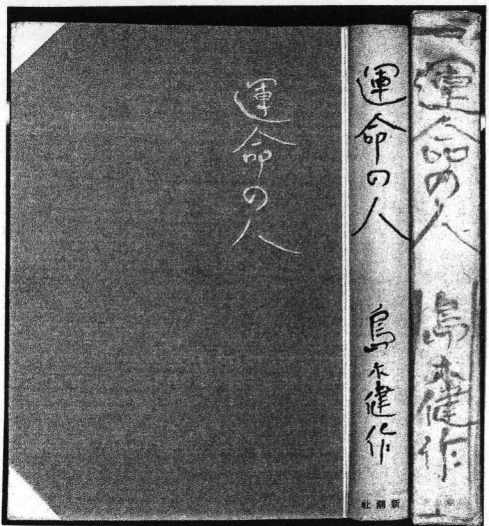 運命の人
運命の人
島木健作
新潮社
運命の人
島木健作